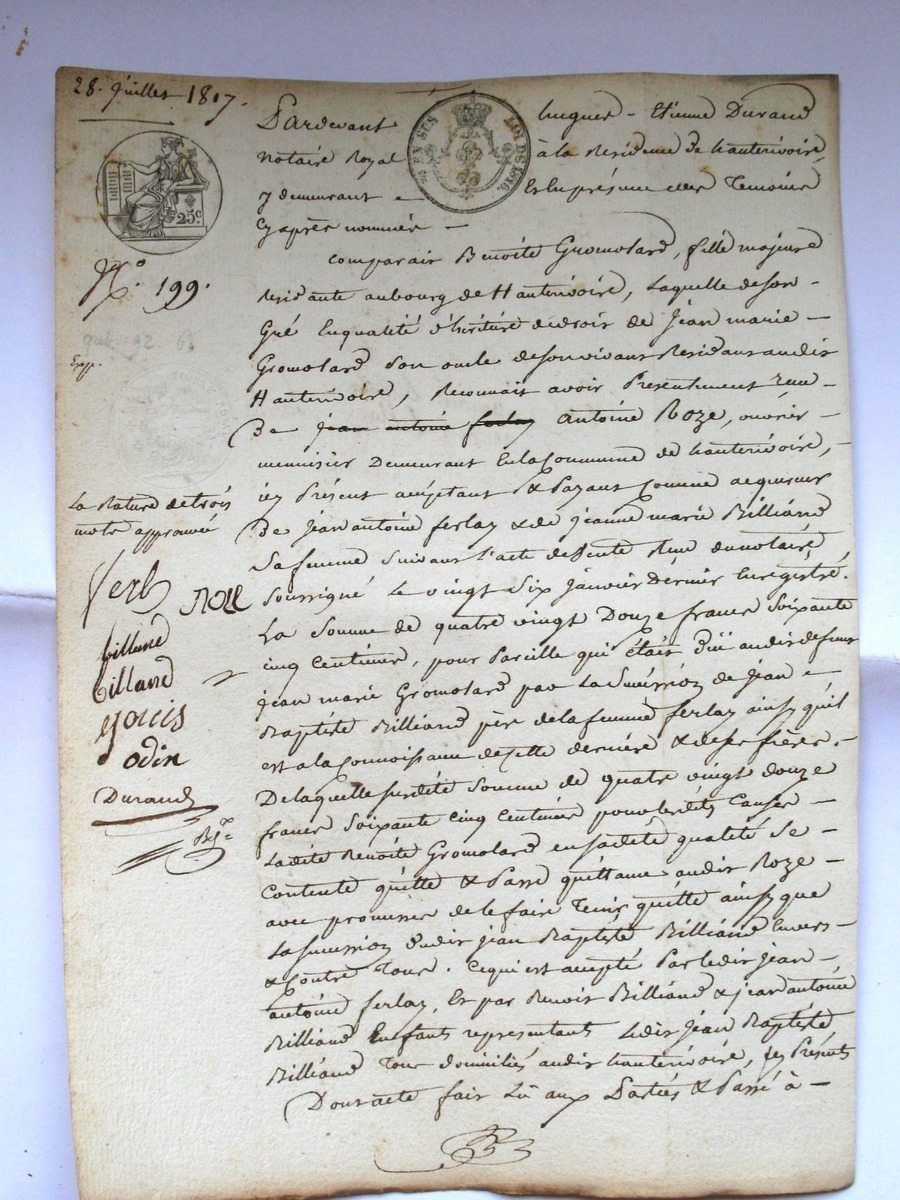 28. Juillet 1817.
Pardevant hugues - Etienne Durand
EN SUS LOI DE 1816
notaire Royal à la Residence de hauterivoire,
25c
y demeurant - Et en présence des Temoins
cy après nommés -
N.o 199.
Comparait Benoite Gromolard, fille majeure
Residante au bourg de Hauterivoire, Laquelle de son -
Gré En qualité d'héritiere de droit de Jean marie -
Gromolard Son oncle de son vivant Residant audit
Hauterivoire, Reconnait avoir Présentement reçu -
De jean antoine ferlay antoine Roze, ouvrier -
menuisier Demeurant En la Commune de hauterivoire, -
icy Présent acceptant & Payant Comme acquereur
De Jean antoine ferlay & de jeanne marie Billiand
Sa femme Suivant l'acte de Vente Reçu du notaire
Soussigné Le vingt Six Janvier Dernier Enregistré.
La Somme de quatre vingt Douze francs Soixante
Cinq Centimes, pour Pareille qui était düe audit defunt
Jean marie Gromolard par La Succession de Jean -
Baptiste Billiand père de la femme ferlay ainsy qu'il
est a la Connoissance de Cette derniere & de Ses freres. -
De laquelle susdite Somme de quatre vingt douze
francs Soixante Cinq Centimes pour lesdites Causes -
Ladite Benoite Gromolard en sadite qualité Se -
Contente quitte & Passe quittance audit Roze -
avec promesse de le faire Tenir quitte ainsy que
La Succession dudit jean Baptiste Billiand Envers -
& Contre Tous. Ce qui est accepté Par ledit Jean -
antoine ferlay, Et par Benoit Billiand & jean antoine
Billiand Enfants representants Ledit Jean Baptiste
Billiand Tous domiciliés audit hauterivoire, icy Présents
Dont acte fait Lû aux Parties & Passé à -
La Rature de trois
mots approuvée
ferl Roze
billiand
billand
odin
Durand